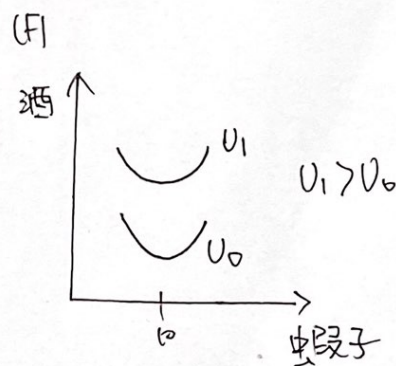 (F)
酒
U₁
U₁>U₀
U₀
10
蝦子